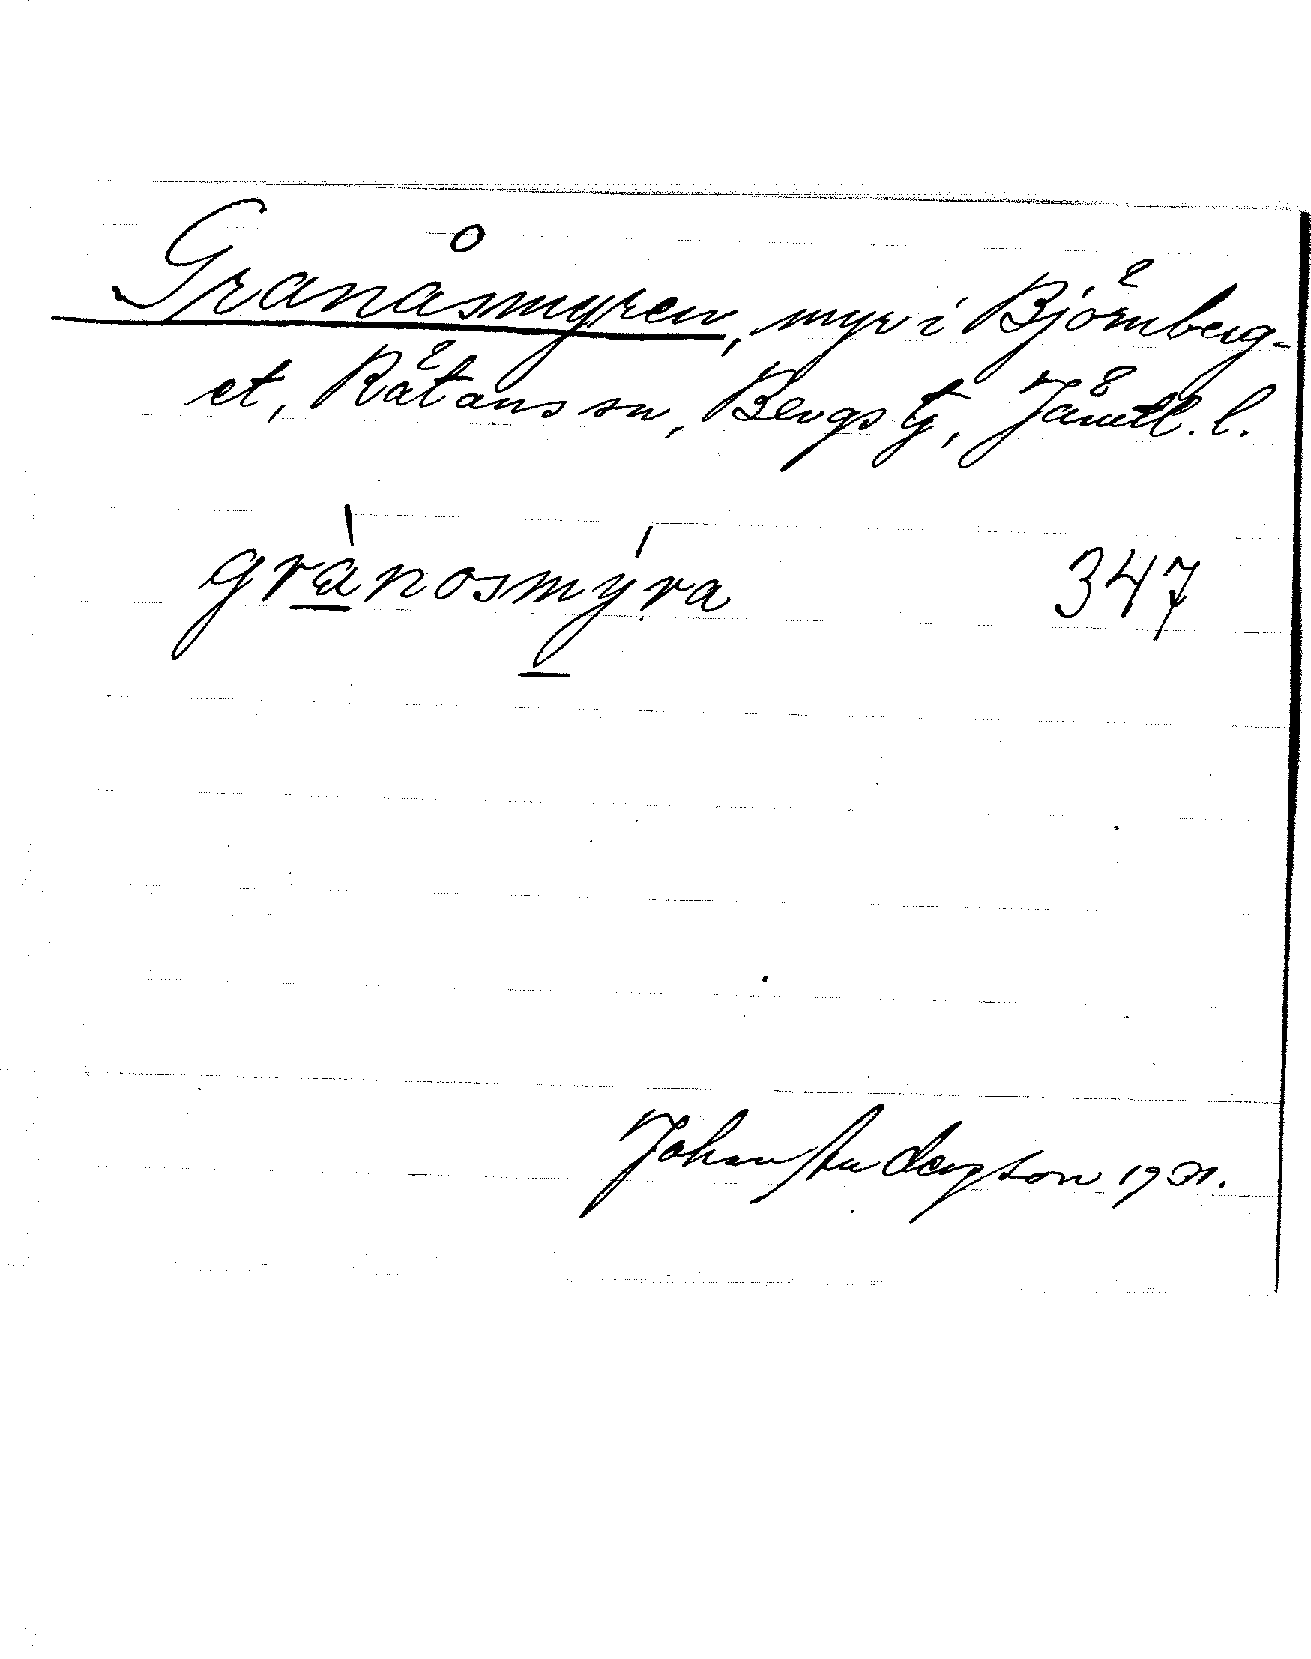 Granåsmyren, myr i Björnberg-
et, Rätans sn, Bergs tg, Jämtl. l.
grànosmýra 347
Johan Anderson 1931.